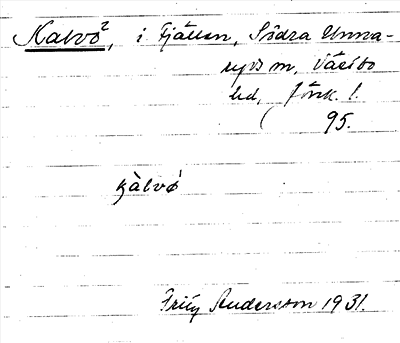 Kalvö², i Fjällen, Södra Unna-
ryds m, Västbo
hd, Jönk. l.
95.
kàlvö́
Fritz Andersson 1931.